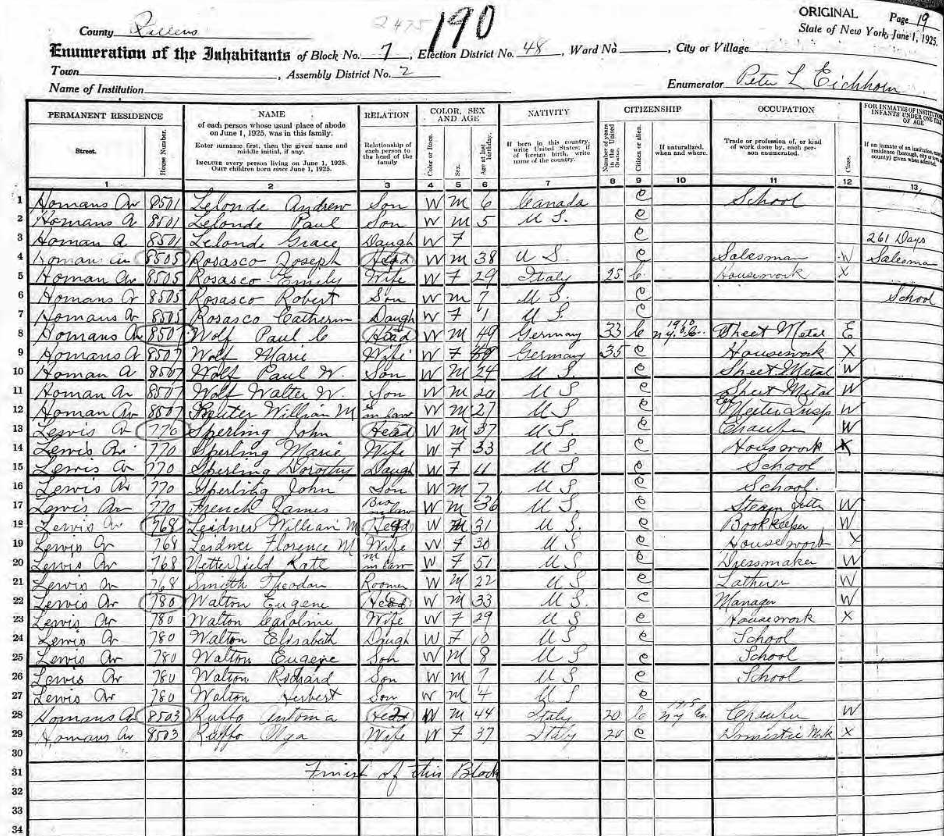 2475 190
ORIGINAL Page 19
State of New York, June 1, 1925.
County Queens
Enumeration of the Inhabitants of Block No. 7, Election District No. 48, Ward No , City or Village
Town , Assembly District No. 2
Name of Institution Enumerator Peter L Eichhorn
PERMANENT RESIDENCE NAME RELATION COLOR, SEX AND AGE NATIVITY CITIZENSHIP OCCUPATION
Street. House Number. of each person whose usual place of abode on June 1, 1925, was in this family. Enter surname first, then the given name and middle initial, if any. INCLUDE every person living on June 1, 1925. OMIT children born since June 1, 1925. Relationship of each person to the head of the family Color or Race. Sex. Age at last birthday. If born in this country, write United States; if of foreign birth, write name of the country. Number of years in the United States. Citizen or alien. If naturalized, when and where. Trade or profession of, or kind of work done by, each person enumerated. Class.
1 2 3 4 5 6 7 8 9 10 11 12 13
1 Homans Av 8501 Lelonde Andrew Son W M 6 Canada C School
2 Homans A 8501 Lelonde Paul Son W M 5 U S. C
3 Homan A. 8501 Lelonde Grace Daugh W F C 261 Days
4 Homan Av 8505 Rosasco Joseph Head W M 38 U S C Salesman W Salesman
5 Homan Av 8505 Rosasco Emily Wife W F 29 Italy 25 C Housework X
6 Homans Av 8505 Rosasco Robert Son W M 7 U S C School
7 Homans Av 8505 Rosasco Catherin Daugh W F 1 U S C
8 Homans A 8507 Wolf Paul C Head W M 49 Germany 33 C Sheet Metal E
9 Homans A 8507 Wolf Marie Wife W F Germany 35 C Housework X
10 Homan A 8507 Wolf Paul W. Son W M 24 U S C Sheet Metal W
11 Homan A 8507 Wolf Walter W. Son W M 20 U S C Sheet Metal W
12 Homan Av 8507 William M in law W M 27 U S C W
13 Lewis Av 770 Sperling John Head W M 37 U S. C W
14 Lewis Av 770 Sperling Marie Wife W F 33 U S C Housework X
15 Lewis Av 770 Sperling Dorothy Daugh W F 11 U S C School
16 Lewis Av 770 Sperling John Son W M 7 U S C School.
17 Lewis Av 770 French James Bro in law W M 36 U S. C Steam W
18 Lewis Av 768 Leidner William M Head W M 31 U S. C Bookkeeper W
19 Lewis Av 768 Leidner Florence M Wife W F 30 U S C Housework X
20 Lewis Av 768 Netterfield Kate M in law W F 51 U S C Dressmaker W
21 Lewis Av 768 Smith Roomer W M 22 U S C Latherer W
22 Lewis Av 780 Walton Eugene Head W M 33 U S C Manager W
23 Lewis Av 780 Walton Caroline Wife W F 29 U S C Housework X
24 Lewis Av 780 Walton Elisabath Daugh W F 10 U S C School
25 Lewis Av 780 Walton Eugene Son W M 8 U S C School
26 Lewis Av 780 Walton Richard Son W M 7 U S C School
27 Lewis Av 780 Walton Herbert Son W M 4 U S C
28 Homans A 8503 Head W M 44 Italy 20 C W
29 Homans Av 8503 Olga Wife W F 37 Italy 20 C Domestic X
30
31 Finish of this Block
32
33
34